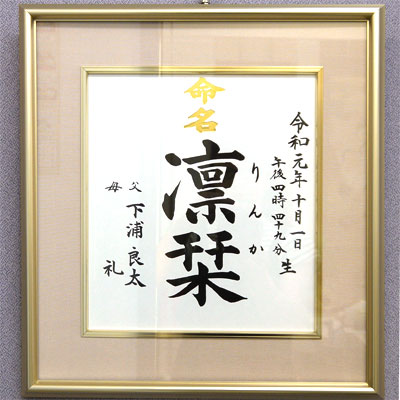 命名
令和元年十月一日
午後四時四十九分生
りんか
凛栞
父 下浦良太
母 礼